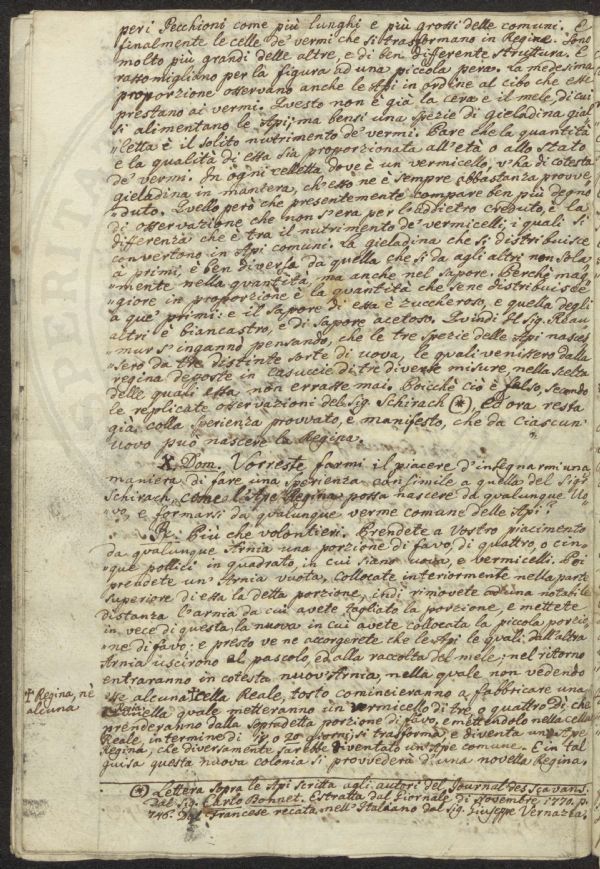 peri Pecchioni come più lunghi e più grossi delle comuni. E
finalmente le celle de' vermi che si trasformano in Regine. Sono
molto più grandi delle altre, e di ben differente struttura. E
rassomigliano per la figura ad una piccola pera. La medesima
proporzione osservano anche le Api in ordine al cibo che esse
prestano ai vermi. Questo non è già la cera e il mele, di cui
si alimentano le Api; ma bensì una spezie di gieladina gial„
„letta è il solito nutrimento de' vermi. Pare che la quantità
e la qualità di essa sia proporzionata all'età o allo stato
de' vermi. In ogni celletta dove è un vermicello, v'ha di cotesta
gieladina in maniera, ch'esso ne è sempre abbastanza provve„
„duto. Quello però che presentemente compare ben più degno
di osservazione che non s'era per l'addietro creduto, è la
diferenza che è tra il nutrimento de' vermicelli, i quali si
convertono in Api comuni. La gieladina che si distribuisce
a primi, è ben diversa da quella che si da agli altri non sola„
„mente nella quantità, ma anche nel sapore. Perchè mag„
„giore in proporzione è la quantità che se ne distribuisce
a que' primi: e il sapore di essa è zuccheroso, e quella degli
altri è biancastro, e di sapore acetoso. Quindi il Sig. Reau„
„mur s'ingannò pensando, che le tre spezie delle Api nasces„
„sero da tre distinte sorte di uova, le quali venissero dalla
regina deposte in casuccie di tre diverse misure, nella scelta
delle quali essa non errasse mai. Poicchè ciò è falso, secondo
le replicate osservazioni del Sig. Schirach (*), ed ora resta
già colla sperienza provvato, e manifesto, che da ciascun
uovo può nascere la Regina.
X Dom. Vorreste farmi il piacere d'insegnarmi una
maniera di fare una sperienza consimile a quella del Sigr.
Schirach, come l'Ape Regina possa nascere da qualunque Uo„
„vo, e formarsi da qualunque verme comune delle Api?
R. Più che volontieri. Prendete a vostro piacimento
da qualunque Arnia una porzione di favo, di quattro, o cin„
„que pollici in quadrato, in cui siano uova, e vermicelli. Poi
prendete un'Arnia vuota, collocate interiormente nella parte
superiore di essa la detta porzione, indi rimovete ad una notabile
distanza l'arnia da cui avete tagliato la porzione, e mettete
in vece di questa la nuova in cui avete collocata la piccola porzio„
„ne di favo: e presto ve ne accorgerete che le Api le quali dall'altra
Arnia uscirono al pascolo, ed alla raccolta del mele; nel ritorno
entraranno in cotesta nuov'Arnia, nella quale non vedendo
esse alcuna † cella Reale, tosto comincieranno a fabbricare una
† Regina, nè
alcuna
nella quale metteranno un vermicello di tre, o quattro dì che
prenderanno dalla sopradetta porzione di favo, e mettendolo nella cella
Reale, in termine di 18, o 20 giorni, si trasforma, e diventa un'Ape
Regina, che diversamente sarebbe diventato un'Ape comune. E in tal
guisa questa nuova colonia si provvederà di una novella Regina.
(*) Lettera sopra le Api scritta agli autori del Journal des Scavans.
dal Sig. Carlo Bonnet. Estratta dal Giornale di Novembre 1770. p.
746. Dal Francese recata nell'Italiano dal Sig. Giuseppe Vernazza.